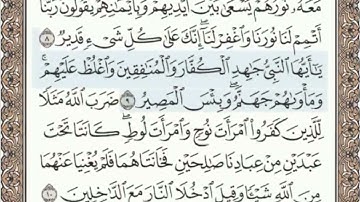 مَعَهُۥ نُورُهُمْ يَسْعَىٰ بَيْنَ أَيْدِيهِمْ وَبِأَيْمَـٰنِهِمْ يَقُولُونَ رَبَّنَآ
أَتْمِمْ لَنَا نُورَنَا وَٱغْفِرْ لَنَآ ۖ إِنَّكَ عَلَىٰ كُلِّ شَىْءٍ قَدِيرٌ ٨
يَـٰٓأَيُّهَا ٱلنَّبِىُّ جَـٰهِدِ ٱلْكُفَّارَ وَٱلْمُنَـٰفِقِينَ وَٱغْلُظْ عَلَيْهِمْ ۚ
وَمَأْوَىٰهُمْ جَهَنَّمُ ۖ وَبِئْسَ ٱلْمَصِيرُ ٩ ضَرَبَ ٱللَّهُ مَثَلًا
لِّلَّذِينَ كَفَرُوا۟ ٱمْرَأَتَ نُوحٍ وَٱمْرَأَتَ لُوطٍ ۖ كَانَتَا تَحْتَ
عَبْدَيْنِ مِنْ عِبَادِنَا صَـٰلِحَيْنِ فَخَانَتَاهُمَا فَلَمْ يُغْنِيَا عَنْهُمَا
مِنَ ٱللَّهِ شَيْـًٔا وَقِيلَ ٱدْخُلَا ٱلنَّارَ مَعَ ٱلدَّٰخِلِينَ ١٠